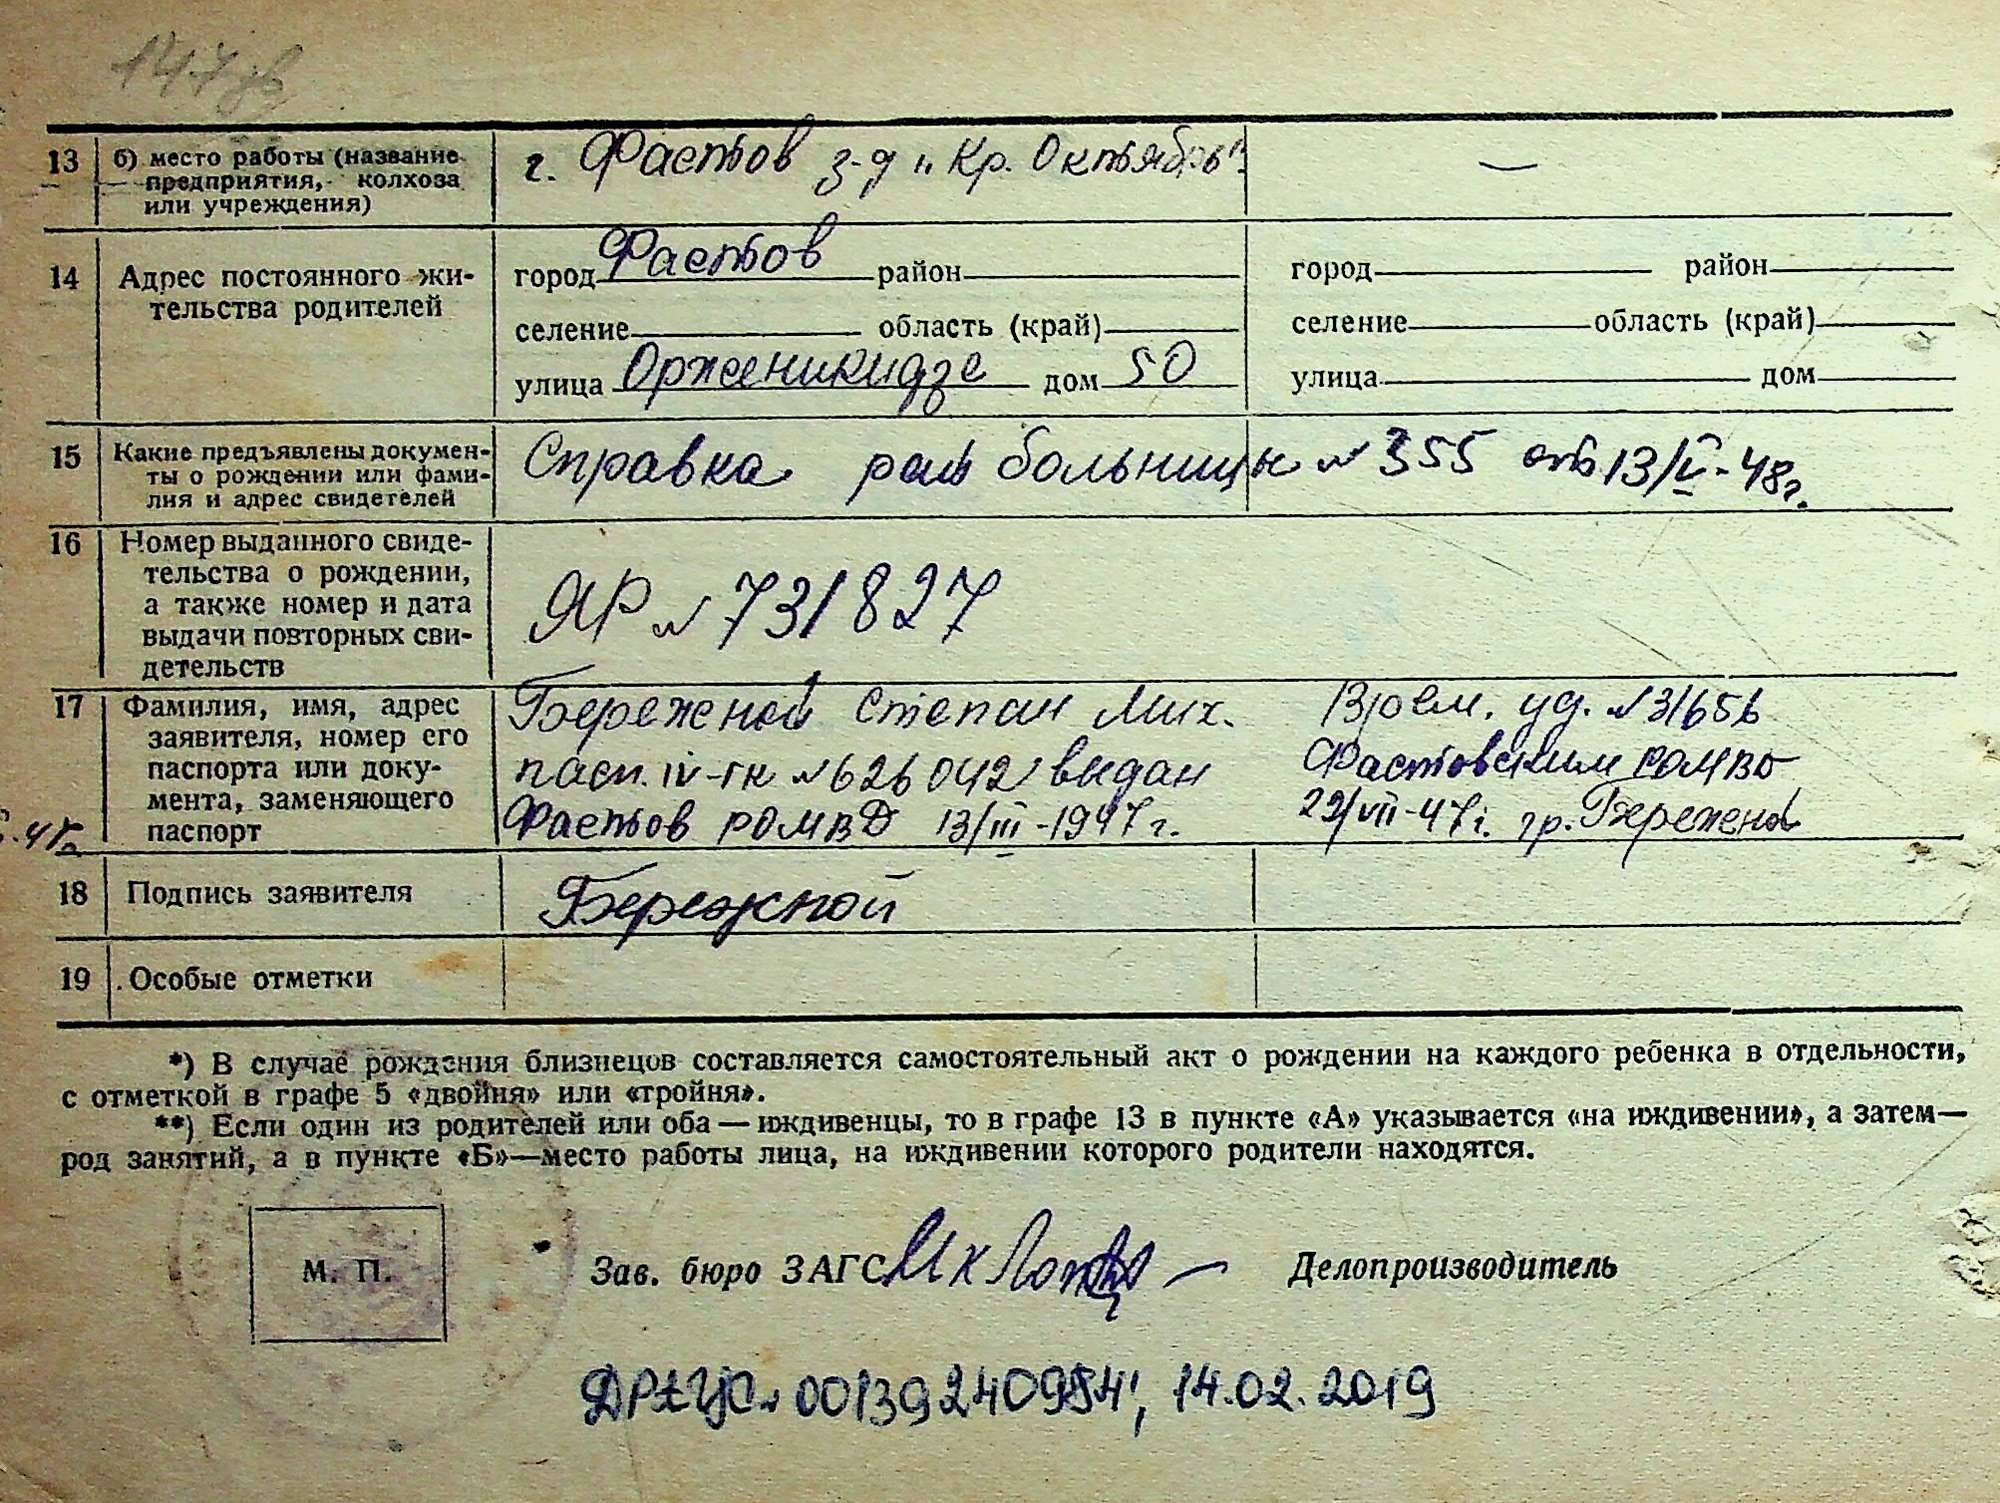 147 зв
13 б) место работы (название г. Фастов з-д „Кр. Октябрь". —
предприятия, колхоза
или учреждения)
14 Адрес постоянного жи- город Фастов район город район
тельства родителей селение область (край) селение область (край)
улица Орженикидзе дом 50 улица дом
15 Какие предъявлены докумен- Справка больницы № 355 от 13/V-48г.
ты о рождении или фами-
лия и адрес свидетелей
16 Номер выданного свиде-
тельства о рождении,
а также номер и дата ЯР № 731827
выдачи повторных сви-
детельств
17 Фамилия, имя, адрес Бережной Степан Мих. Врем. уд. №
заявителя, номер его
паспорта или доку- пасп. IV-ГК № 626042 выдан Фастовским РОМВД
мента, заменяющего Фастов РОМВД 13/III-1947г. 22/VII-47г. гр. Бережна
паспорт
18 Подпись заявителя Бережной
19 Особые отметки
*) В случае рождения близнецов составляется самостоятельный акт о рождении на каждого ребенка в отдельности,
с отметкой в графе 5 «двойня» или «тройня».
**) Если один из родителей или оба — иждивенцы, то в графе 13 в пункте «А» указывается «на иждивении», а затем—
род занятий, а в пункте «Б»—место работы лица, на иждивении которого родители находятся.
М. П. Зав. бюро ЗАГС Делопроизводитель
00139240954, 14.02.2019